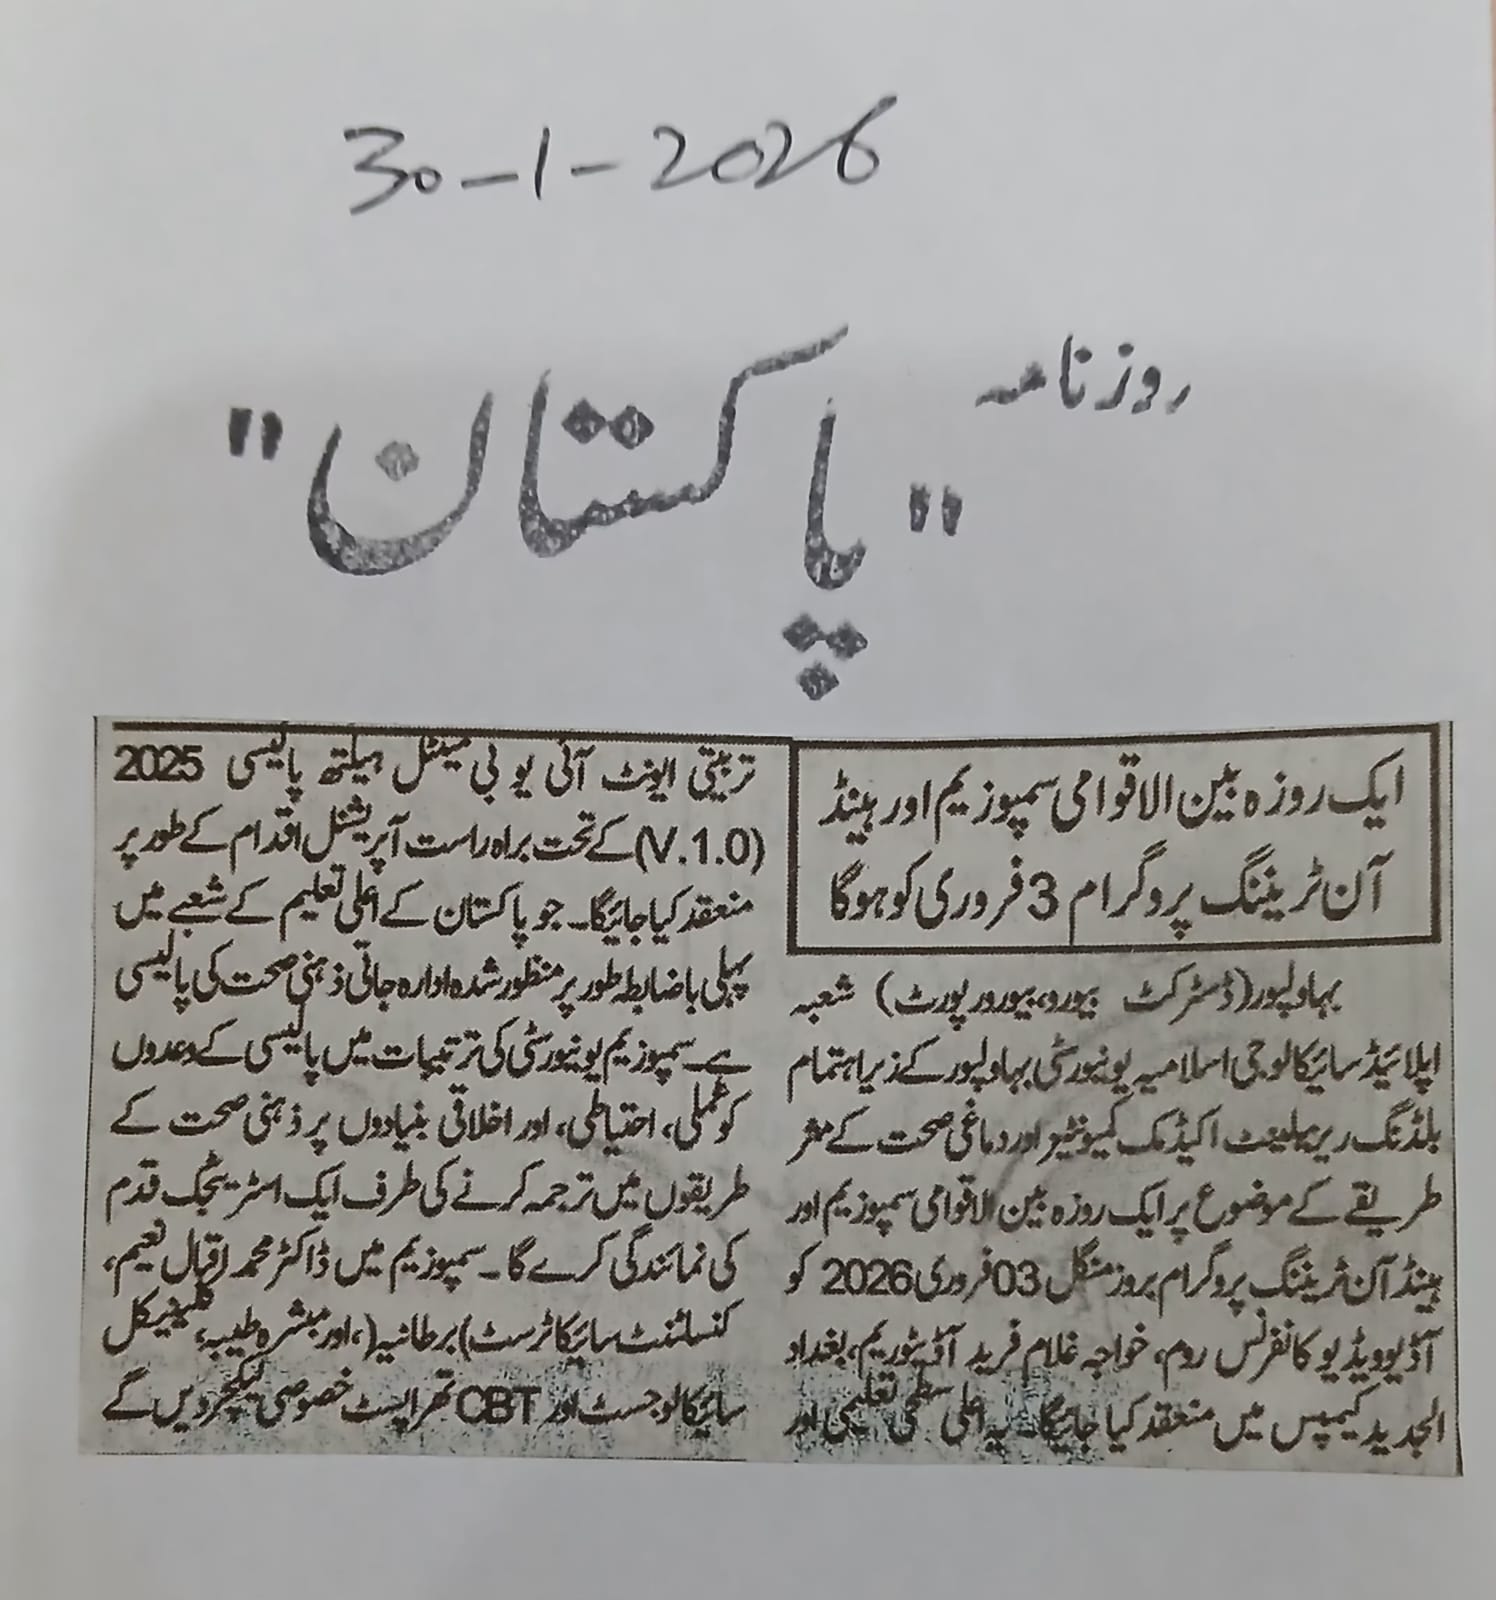 30-1-2026
روزنامہ
"پاکستان"
ایک روزہ بین الاقوامی سمپوزیم اور ہینڈ
آن ٹریننگ پروگرام 3 فروری کو ہوگا
بہاولپور(ڈسٹرکٹ بیورو،بیورورپورٹ) شعبہ
اپلائیڈ سائیکالوجی اسلامیہ یونیورسٹی بہاولپور کے زیراہتمام
بلڈنگ ریزیلینٹ اکیڈمک کمیونٹیز اور دماغی صحت کے مثر
طریقے کے موضوع پر ایک روزہ بین الاقوامی سمپوزیم اور
ہینڈ آن ٹریننگ پروگرام بروز منگل 03فروری2026 کو
آڈیو ویڈیو کانفرنس روم، خواجہ غلام فرید آڈیٹوریم،بغداد
الجدید کیمپس میں منعقد کیا جائیگا۔ یہ اعلی سطحی تعلیمی اور
تربیتی ایونٹ آئی یو بی مینٹل ہیلتھ پالیسی 2025
(V.1.0) کے تحت براہ راست آپریشنل اقدام کے طور پر
منعقد کیا جائیگا۔ جو پاکستان کے اعلی تعلیم کے شعبے میں
پہلی باضابطہ طور پر منظور شدہ ادارہ جاتی ذہنی صحت کی پالیسی
ہے۔ سمپوزیم یونیورسٹی کی ترتیبات میں پالیسی کے وعدوں
کو عملی، احتیاطی، اور اخلاقی بنیادوں پر ذہنی صحت کے
طریقوں میں ترجمہ کرنے کی طرف ایک اسٹریٹجک قدم
کی نمائندگی کرے گا۔ سمپوزیم میں ڈاکٹر محمد اقبال نعیم،
کنسلٹنٹ سائیکاٹرسٹ) برطانیہ(، اور مبشرہ طیبہ، کلینیکل
سائیکالوجسٹ اور CBT تھراپسٹ خصوصی لیکچر دیں گے